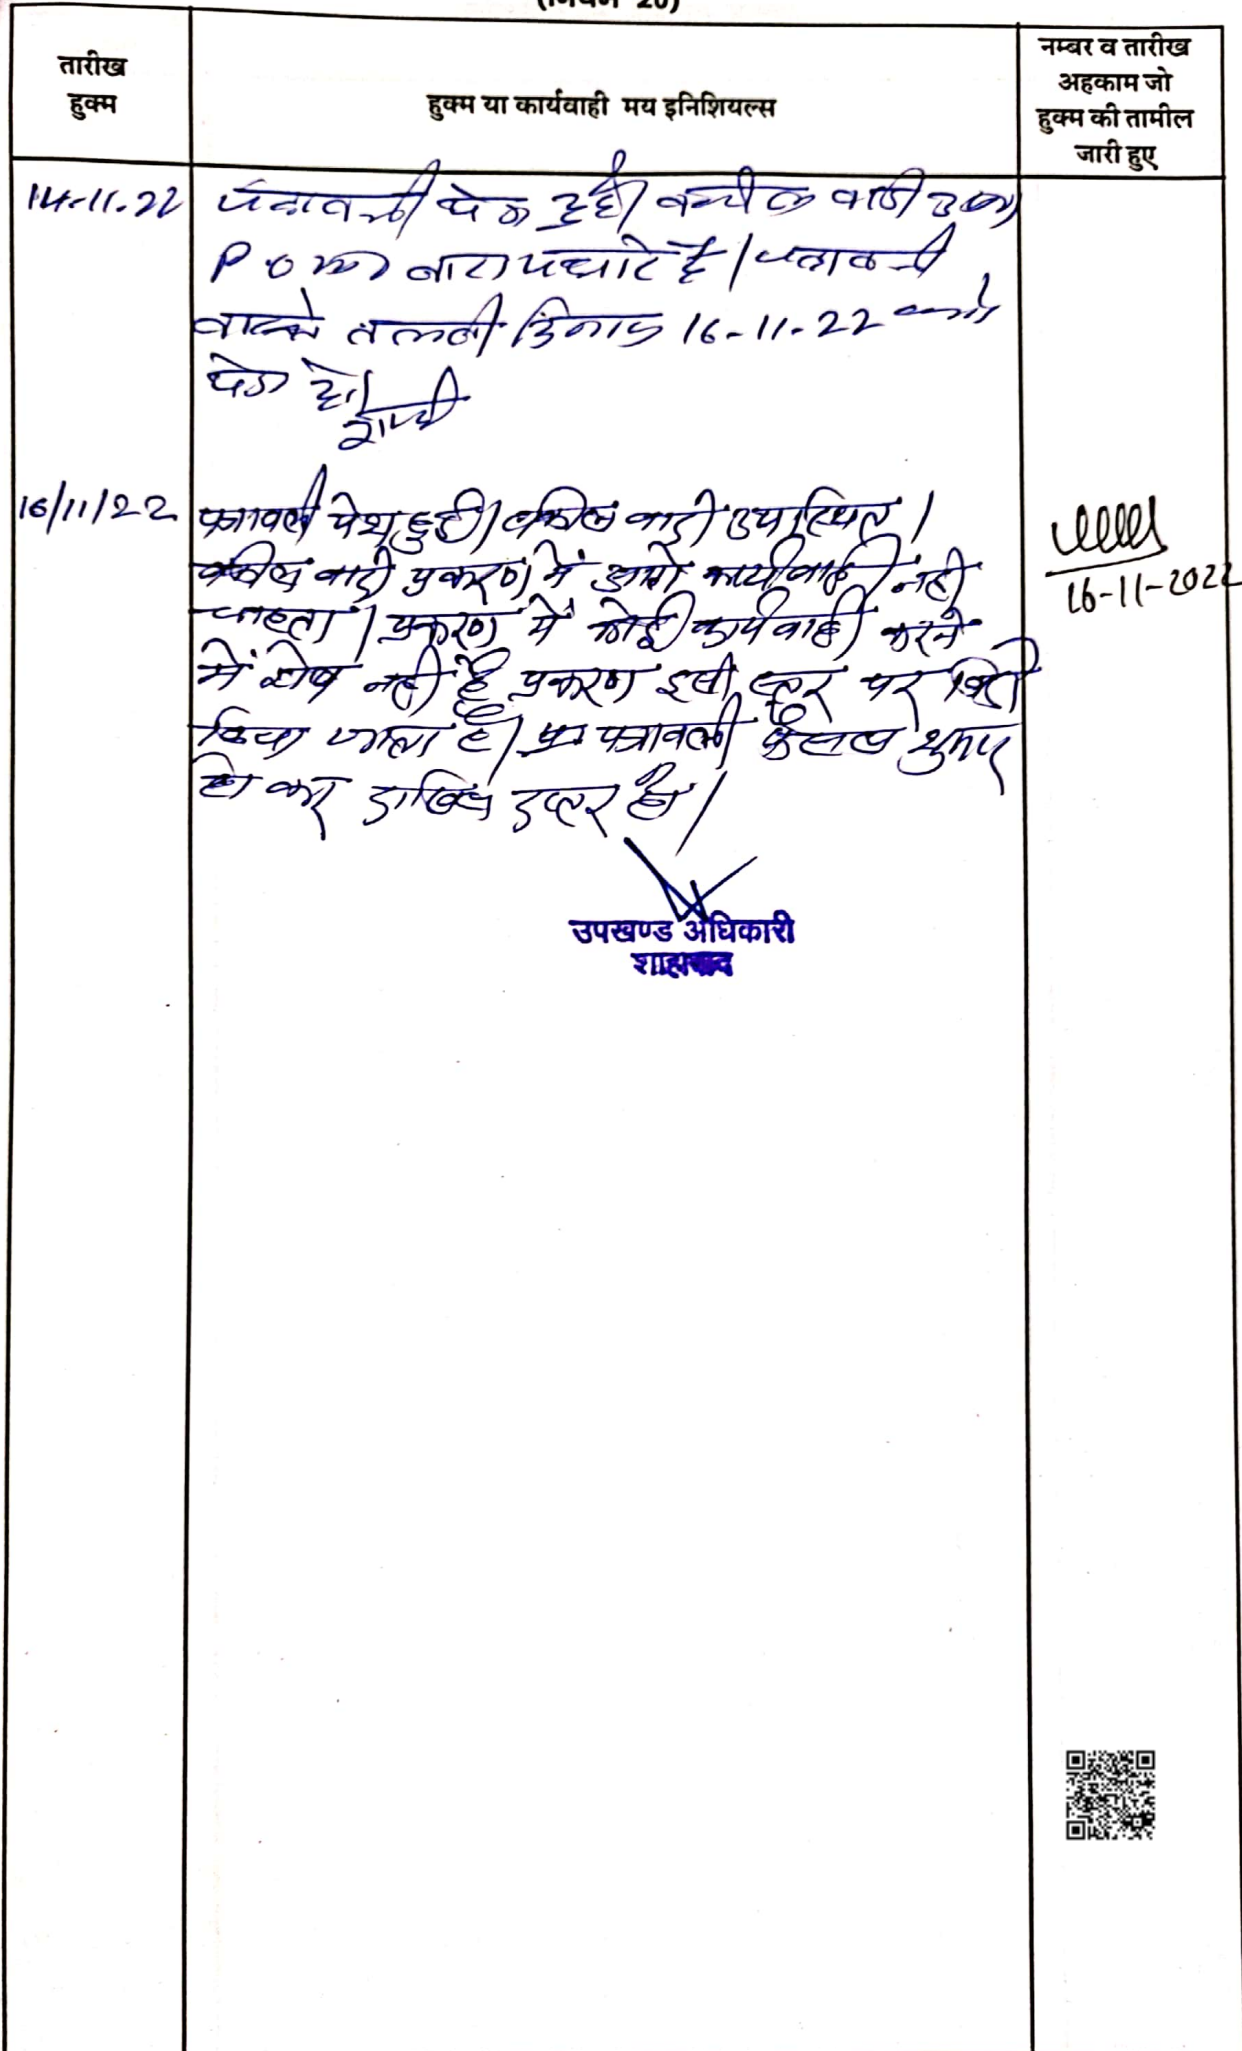 (नियम 20)
तारीख
हुक्म
हुक्म या कार्यवाही मय इनिशियल्स
नम्बर व तारीख
अहकाम जो
हुक्म की तामील
जारी हुए
14-11-22 पत्रावली पेश हुई। वकील वादी उप।
P.O. बारा पधारे है। पत्रावली
वास्ते तलबी दिनांक 16-11-22 को
पेश हो।
16/11/22 पत्रावली पेश हुई। वकील वादी उपस्थित।
वकील वादी प्रकरण में आगे कार्यवाही नही
चाहता। प्रकरण में कोई कार्यवाही करने
में शेष नही है प्रकरण इसी स्तर पर
किया जाता है। पत्रावली फैसल शुमार
हो कर दाखिल दफ्तर हो।
16-11-2022
उपखण्ड अधिकारी
शाहाबाद